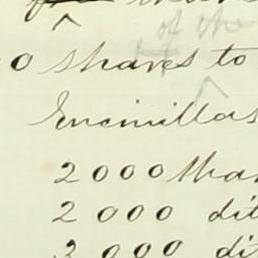 of the
0 shares to
Encinillas
2000 Shar
2000 dit
2000 dit